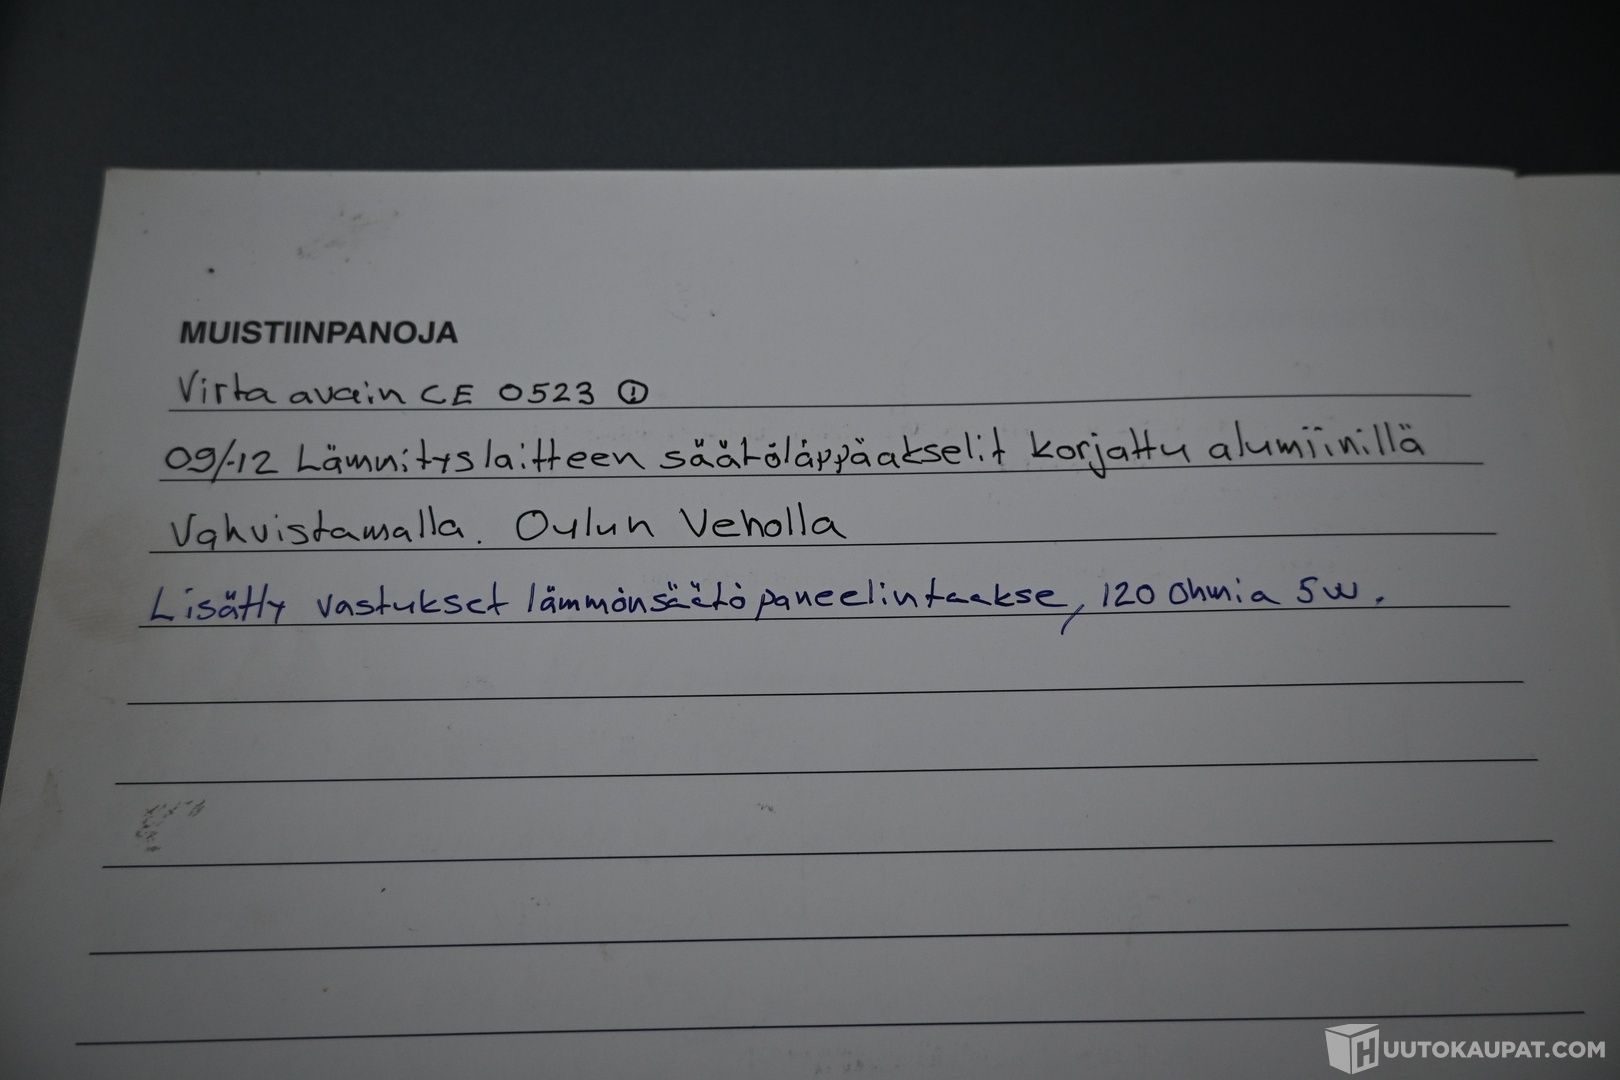 MUISTIINPANOJA
Virta avain CE 0523 ①
09/-12 Lämmityslaitteen säätöläppäakselit korjattu alumiinillä
Vahvistamalla. Oulun Veholla
Lisätty vastukset lämmönsäätöpaneelintaakse, 120 Ohmia 5W.
HUUTOKAUPAT.COM